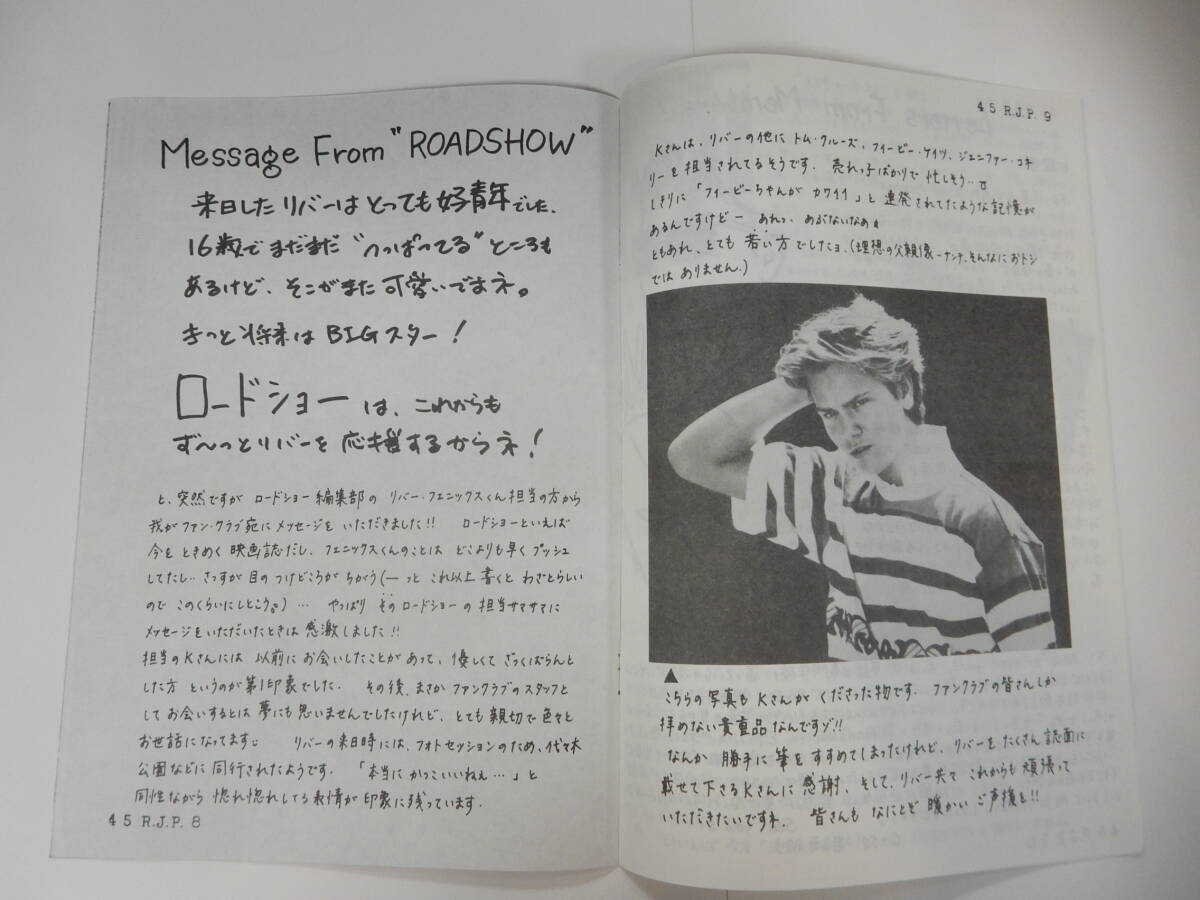 Message From "ROADSHOW"
来日したリバーはとっても好青年でした.
16歳でまだまだ"つっぱってる"ところも
あるけど、そこがまた可愛いでまネ。
きっと将来はBIGスター!
ロードショーは、これからも
ず〜っとリバーを応援するからネ!
と、突然ですが ロードショー編集部の リバー・フェニックスくん担当の方から
我がファン・クラブ宛にメッセージを いただきました!! ロードショーといえば
今をときめく映画誌だし、フェニックスくんのことは どこよりも早くプッシュ
してたし‥さっすが目のつけどころが ちがう(—っと これ以上書くと わざとらしい
ので このくらいにしとこう。)… やっぱり そのロードショーの 担当サマサマに
メッセージをいただいたときは 感激しました!!
担当のKさんには 以前に お会いしたことがあって、優しくて ざっくばらんと
した方 というのが第1印象でした. その後、まさか ファンクラブのスタッフと
して お会いするとは 夢にも思いませんでしたけれど、とても親切で色々と
お世話になってます
リバーの来日時には、フォトセッションのため、代々木
公園などに 同行されたようです. 「本当に かっこいいねぇ…」と
同性ながら 惚れ惚れしてる表情が印象に残っています.
45 R.J.P. 8
45 R.J.P. 9
Kさんは、リバーの他に トム・クルーズ、フィービー・ケイツ、ジェニファー・コネ
リーを担当されてるそうです. 売れっ子ばかりで 忙しそう‥
しきりに「フィービーちゃんが カワイイ」と 連発されてたような記憶が
あるんですけどー あれっ、あぶないなぁ
ともあれ、とても 若い方 でしたョ.(理想の父親像ーナンテ、そんなにおトシ
ではありません.)
▲
こちらの写真も Kさんが くださった物です. ファンクラブの皆さんしか
拝めない貴重品なんですゾ!!
なんか 勝手に 筆をすすめてしまったけれど、リバーを たくさん誌面に
載せて下さるKさんに 感謝、そして、リバー共々 これからも 頑張って
いただきたいですネ. 皆さんも なにとぞ 暖かい ご声援を!!